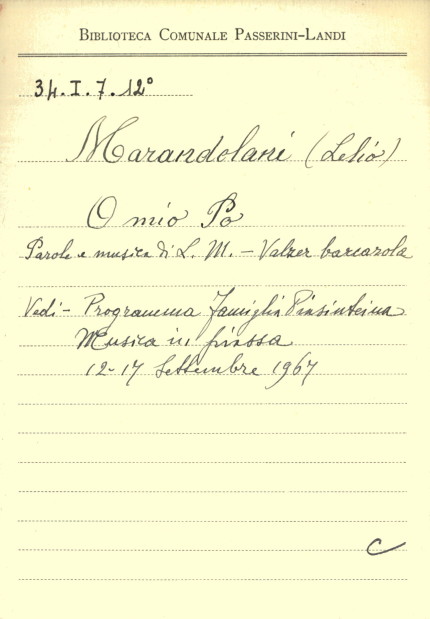 BIBLIOTECA COMUNALE PASSERINI-LANDI
34.I.7.12°
Marandolani (Lelio)
O mio Po
Parole e musica di L. M. - Valzer barcarola
Vedi - Programma Famiglia Piasinteina
Musica in piassa
12-17 Settembre 1967
C